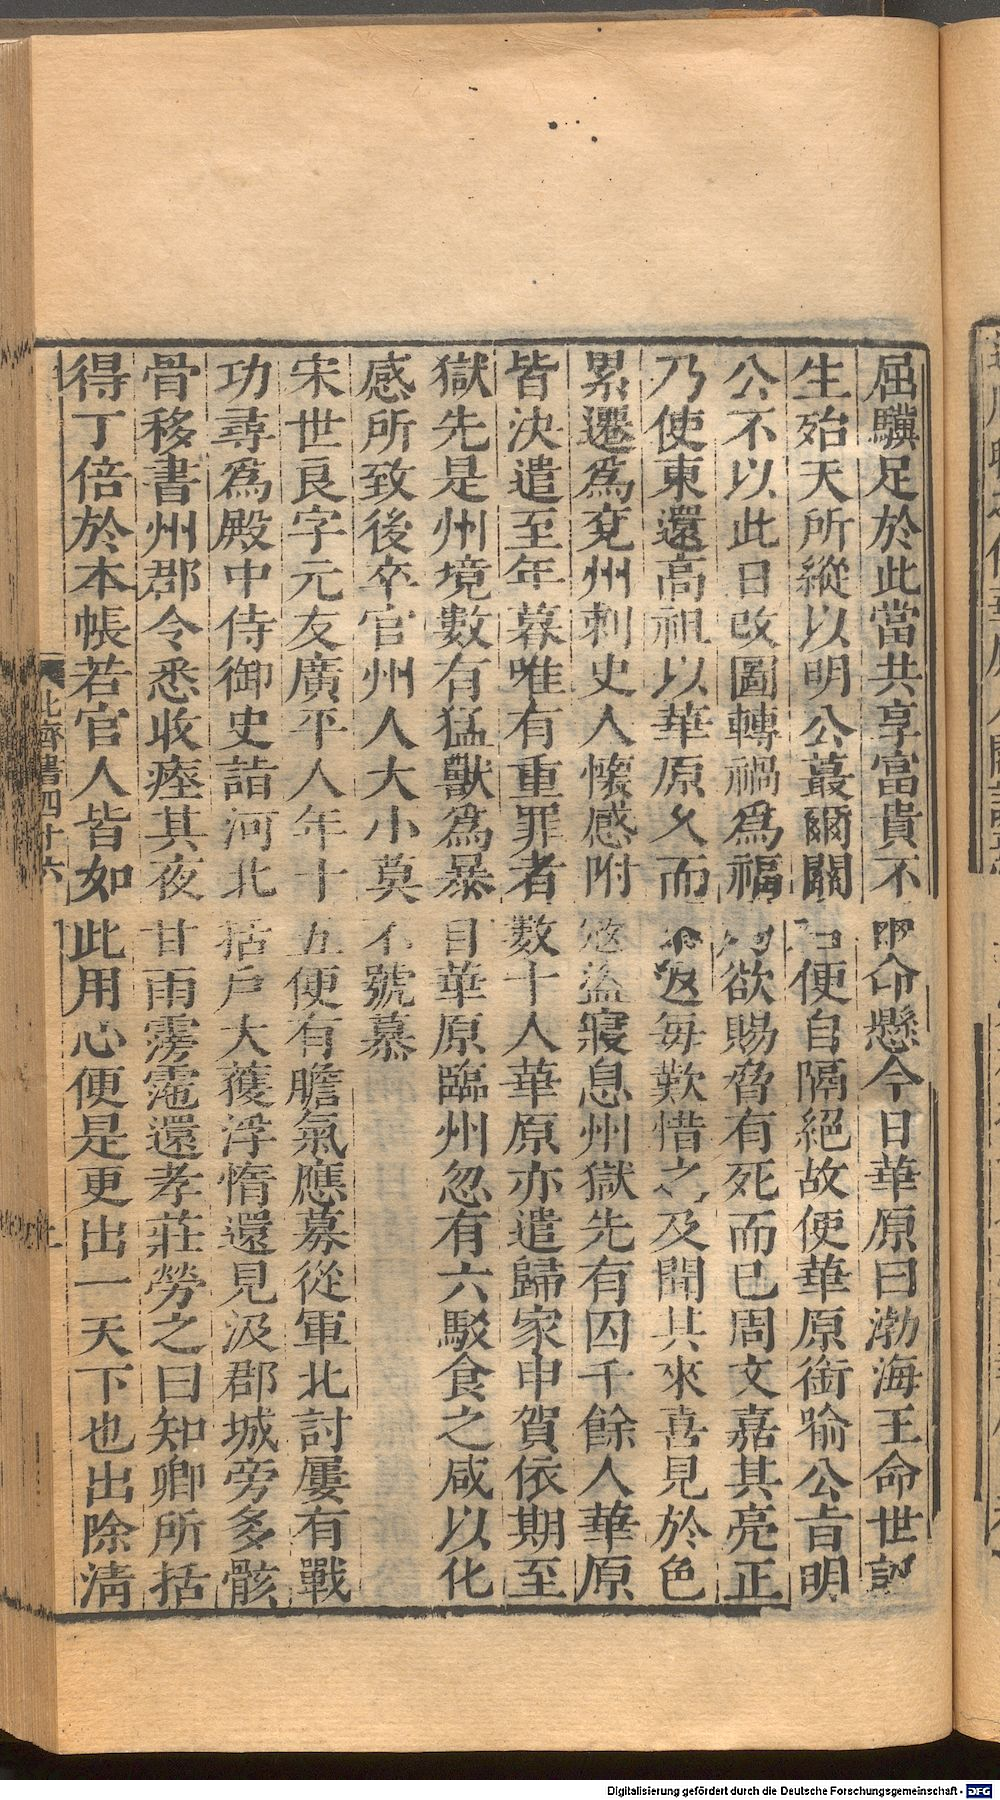 屈驥足於此當共享富貴不命懸今日華原曰渤海王命世誕
生殆天所縱以明公蕞爾關右便自隔絕故使華原銜喻公旨明
公不以此日改圖轉禍為福欲賜脅有死而已周文嘉其亮正
乃使東還高祖以華原久而不返每歎惜之及聞其來喜見於色
累遷爲兗州刺史人懷感附寇盜寢息州獄先有囚千餘人華原
皆決遣至年暮唯有重罪者數十人華原亦遣歸家申賀依期至
獄先是州境數有猛獸爲暴自華原臨州忽有六駮食之咸以化
感所致後卒官州人大小莫不號慕
宋世良字元友廣平人年十五便有膽氣應募從軍北討屢有戰
功尋爲殿中侍御史詣河北括戶大獲浮惰還見汲郡城旁多骸
骨移書州郡令悉收瘞其夜甘雨霶霑還孝莊勞之曰知卿所括
得丁倍於本帳若官人皆如此用心便是更出一天下也出除淸
北齊書四十六
Digitalisierung gefördert durch die Deutsche Forschungsgemeinschaft - DFG